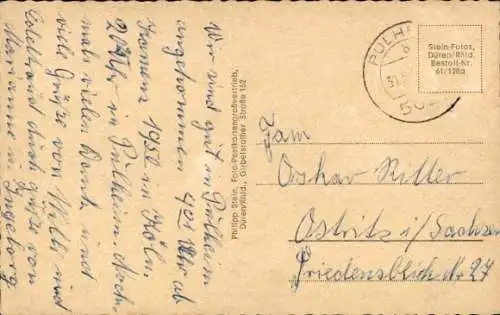 Wir sind gut in Pulheim
angekommen 404 Uhr ab
1956 in Köln
20 Uhr in Pulheim
mals vielen Dank und
viele Grüße von Willi und
auch Grüße von
Marianne u. Ingeborg
Philipp Stein, Foto-Postkartengroßvertrieb,
Düren/Rhld., Gübelstrather Straße 152
PULH
Stein-Fotos,
Düren/Rhld.
Bestell-Nr.
61/128a
Fam
Oskar Ritter
Ostritz i/Sachsen
Friedensblick Nr. 27